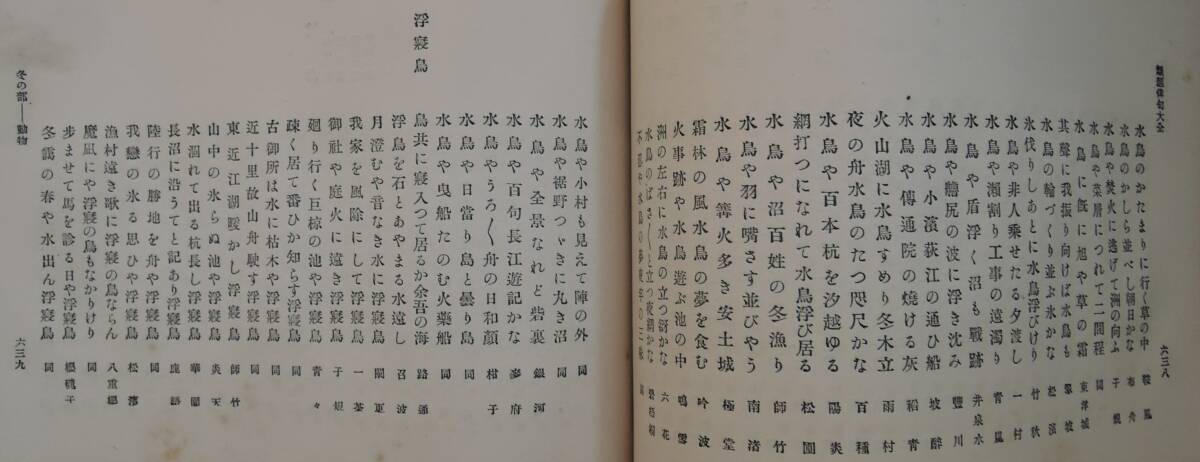 類題俳句大全
六三八
水鳥のかたまりに行く草の中
水鳥のかしら並べし朝日かな
水鳥や焚火に逃げて洲の向ふ 子規
水鳥や菜屑につれて二間程 同
水鳥に飯に旭や草の霜 東洋城
其聲に我振り向けば水鳥も
水鳥の輪づくり並ぶ氷かな 松濱
氷伐りしあとに水鳥浮びけり 竹秋
水鳥や非人乗せたる夕渡し 一村
水鳥や瀬割り工事の遠濁り 青嵐
水鳥や盾浮く沼も戰跡 井泉水
水鳥や艫尻の波に浮き沈み 豐川
水鳥や小濱荻江の通ひ船 坡酔
水鳥や傳通院の燒ける灰 稻青
火山湖に水鳥すめり冬木立 雨村
夜の舟水鳥のたつ咫尺かな 百穂
水鳥や百本杭を汐越ゆる 陽炎
網打つになれて水鳥浮び居る 松園
水鳥や沼百姓の冬漁り 師竹
水鳥や羽に嘴さす並びやう 南涛
水鳥や篝火多き安土城 極堂
霜林の風水鳥の夢を食む 吟波
火事跡や水鳥遊ぶ池の中 鳴雪
洲の左右に水鳥の立つ谺かな 六花
水鳥のばさ〳〵と立つ夜網かな 碧梧桐
水鳥や小村も見えて陣の外 同
水鳥や裾野つゞきに九き沼 同
水鳥や全景なれど砦裏 銀河
水鳥や百句長江遊記かな 夢府
水鳥やうろ〳〵舟の日和顔 柑子
水鳥や日當り島と曇り島 同
水鳥や曳船たのむ火藥船 同
浮寢鳥
鳥共に寢入つて居るか余吾の海 路通
浮鳥を石とあやまる水遠し 沼波
月澄むや音なき水に浮寢鳥 闌更
我家を風除にして浮寢鳥 一茶
御社や庭火に遠き浮寢鳥 子規
廻り行く巨椋の池や浮寢鳥 青々
疎く居て番ひか知らず浮寢鳥 同
古御所は水に枯木や浮寢鳥 同
近十里故山舟駛す浮寢鳥 同
東近江湖暖かし浮寢鳥 師竹
山中の氷らぬ池や浮寢鳥 炎天
水涸れて出る杭長し浮寢鳥 華園
長沼に沿うてと記あり浮寢鳥 鹿語
陸行の勝地を舟や浮寢鳥 同
我戀の氷る思ひや浮寢鳥 松濱
漁村遠き歌に浮寢の鳥ならん 八重櫻
魔凪にや浮寢の鳥もなかりけり 同
歩ませて馬を診る日や浮寢鳥 櫻磈子
冬靄の春や水出ん浮寢鳥 同
冬の部—動物
六三九